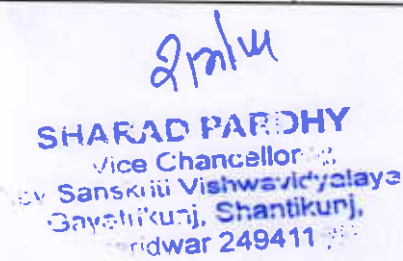 SHARAD PARDHY
Vice Chancellor
Sanskriti Vishwavidyalaya
Gayatrikunj, Shantikunj,
ridwar 249411